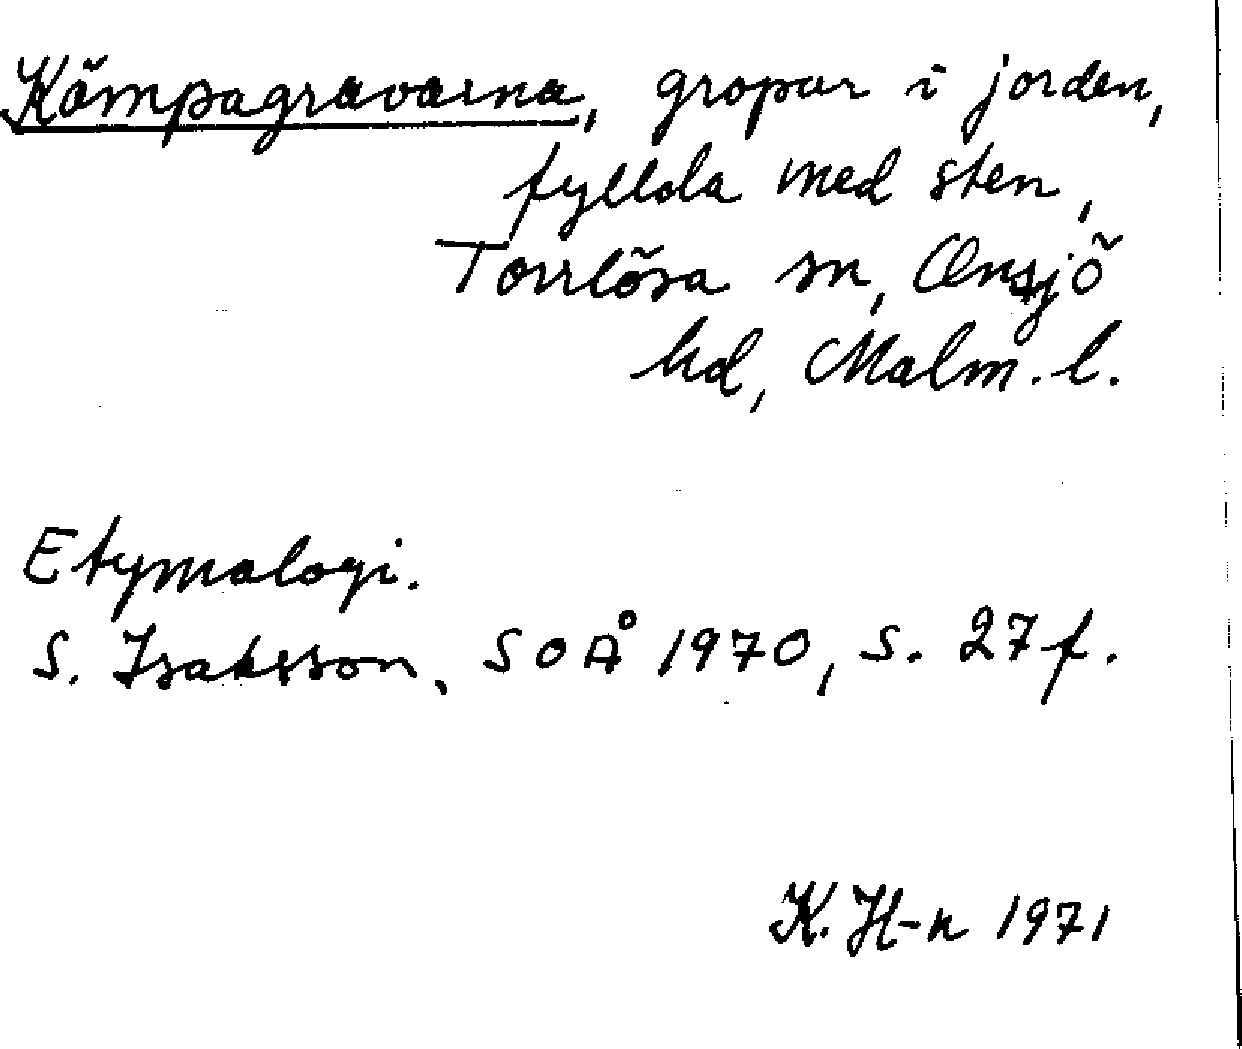 Kämpagravarna, gropar i jorden,
fyllda med sten,
Torrlösa sn, Onsjö
hd, Malm. l.
Etymologi.
S. Isaksson, SOÅ 1970, s. 27 f.
K. H-n 1971